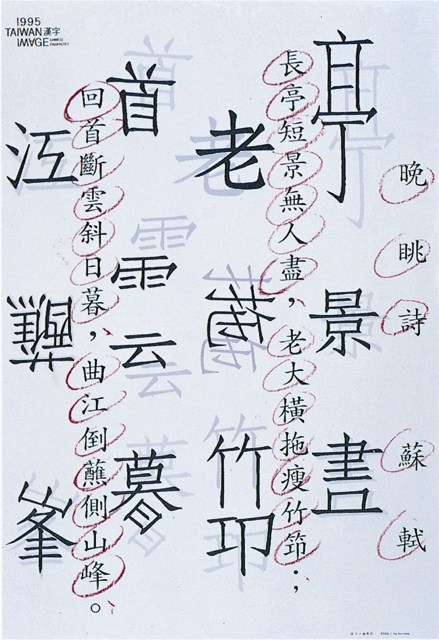 1995
TAIWAN 漢字
IMAGE
晚眺詩 蘇軾
亭 景 畫
長亭短景無人盡，老大橫拖瘦竹笻；
老 拖 笻
首 雲 暮
回首斷雲斜日暮，曲江倒蘸側山峰。
江 蘸 峯